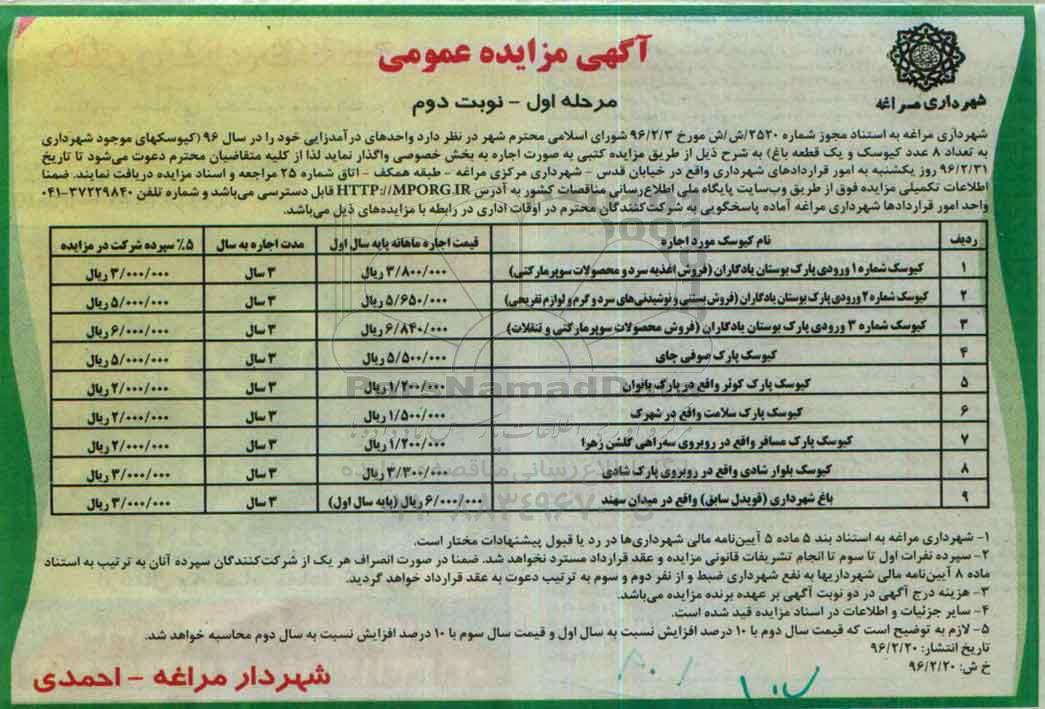 آگهی مزایده عمومی
مرحله اول - نوبت دوم
شهرداری مراغه
شهرداری مراغه به استناد مجوز شماره ۲۵۲۰/ش/ش مورخ ۹۶/۲/۳ شورای اسلامی محترم شهر در نظر دارد واحدهای درآمدزایی خود را در سال ۹۶ (کیوسکهای موجود شهرداری
به تعداد ۸ عدد کیوسک و یک قطعه باغ) به شرح ذیل از طریق مزایده کتبی به صورت اجاره به بخش خصوصی واگذار نماید لذا از کلیه متقاضیان محترم دعوت می‌شود تا تاریخ
۹۶/۲/۳۱ روز یکشنبه به امور قراردادهای شهرداری واقع در خیابان قدس - شهرداری مرکزی مراغه - طبقه همکف - اتاق شماره ۲۵ مراجعه و اسناد مزایده دریافت نمایند. ضمنا
اطلاعات تکمیلی مزایده فوق از طریق وب‌سایت پایگاه ملی اطلاع‌رسانی مناقصات کشور به آدرس HTTP://MPORG.IR قابل دسترسی می‌باشد و شماره تلفن ۳۷۲۲۹۸۴۰-۰۴۱
واحد امور قراردادها شهرداری مراغه آماده پاسخگویی به شرکت‌کنندگان محترم در اوقات اداری در رابطه با مزایده‌های ذیل می‌باشد.
ردیف نام کیوسک مورد اجاره قیمت اجاره ماهانه پایه سال اول مدت اجاره به سال ۵٪ سپرده شرکت در مزایده
۱ کیوسک شماره ۱ ورودی پارک بوستان یادگاران (فروش اغذیه سرد و محصولات سوپرمارکتی) ۳/۸۰۰/۰۰۰ ریال ۳ سال ۳/۰۰۰/۰۰۰ ریال
۲ کیوسک شماره ۲ ورودی پارک بوستان یادگاران (فروش بستنی و نوشیدنی‌های سرد و گرم و لوازم تفریحی) ۵/۶۵۰/۰۰۰ ریال ۳ سال ۵/۰۰۰/۰۰۰ ریال
۳ کیوسک شماره ۳ ورودی پارک بوستان یادگاران (فروش محصولات سوپرمارکتی و تنقلات) ۶/۸۴۰/۰۰۰ ریال ۳ سال ۶/۰۰۰/۰۰۰ ریال
۴ کیوسک پارک صوفی چای ۵/۵۰۰/۰۰۰ ریال ۳ سال ۵/۰۰۰/۰۰۰ ریال
۵ کیوسک پارک کوثر واقع در پارک بانوان ۱/۲۰۰/۰۰۰ ریال ۳ سال ۲/۰۰۰/۰۰۰ ریال
۶ کیوسک پارک سلامت واقع در شهرک ۱/۵۰۰/۰۰۰ ریال ۳ سال ۲/۰۰۰/۰۰۰ ریال
۷ کیوسک پارک مسافر واقع در روبروی سه‌راهی گلشن زهرا ۱/۲۰۰/۰۰۰ ریال ۳ سال ۲/۰۰۰/۰۰۰ ریال
۸ کیوسک بلوار شادی واقع در روبروی پارک شادی ۳/۳۰۰/۰۰۰ ریال ۳ سال ۳/۰۰۰/۰۰۰ ریال
۹ باغ شهرداری (قویدل سابق) واقع در میدان سهند ۶/۰۰۰/۰۰۰ ریال (پایه سال اول) ۳ سال ۳/۰۰۰/۰۰۰ ریال
۱- شهرداری مراغه به استناد بند ۵ ماده ۵ آیین‌نامه مالی شهرداری‌ها در رد یا قبول پیشنهادات مختار است.
۲- سپرده نفرات اول تا سوم تا انجام تشریفات قانونی مزایده و عقد قرارداد مسترد نخواهد شد. ضمنا در صورت انصراف هر یک از شرکت‌کنندگان سپرده آنان به ترتیب به استناد
ماده ۸ آیین‌نامه مالی شهرداریها به نفع شهرداری ضبط و از نفر دوم و سوم به ترتیب دعوت به عقد قرارداد خواهد گردید.
۳- هزینه درج آگهی در دو نوبت آگهی بر عهده برنده مزایده می‌باشد.
۴- سایر جزئیات و اطلاعات در اسناد مزایده قید شده است.
۵- لازم به توضیح است که قیمت سال دوم با ۱۰ درصد افزایش نسبت به سال اول و قیمت سال سوم با ۱۰ درصد افزایش نسبت به سال دوم محاسبه خواهد شد.
تاریخ انتشار: ۹۶/۲/۲۰
خ ش: ۹۶/۲/۲۰
شهردار مراغه - احمدی